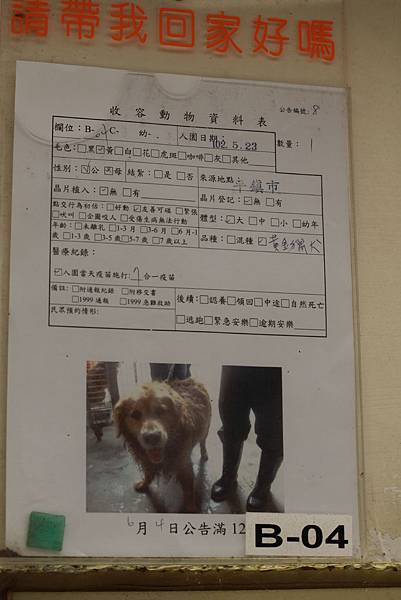 請帶我回家好嗎
公告編號: 8
收容動物資料表
欄位:B-04 C- 幼-. 入園日期: 102.5.23 數量: 1
毛色:□黑☑黃□白□花□虎斑□咖啡□灰□其他
性別:☑公□母 結紮:□是□否 來源地點: 平鎮市
晶片植入:☑無□有 晶片登記:☑無□有
點交行為初估:□好動☑友善可碰□緊張
□吠叫□企圖咬人□受傷生病無法行動 體型:☑大□中□小□幼年
年齡:□未離乳□1-3月□3-6月□6月-1
歲□1-3歲□3-5歲□5-7歲□7歲以上 品種:□混種☑黃金獵犬
醫療紀錄:
☑入園當天疫苗施打: 7合一疫苗
備註:□附通報紀錄□附移交書 後續:□認養□領回□中途□自然死亡
□1999通報□1999急難救助
民眾預約情形: □逃跑□緊急安樂□逾期安樂
6月4日公告滿12
B-04